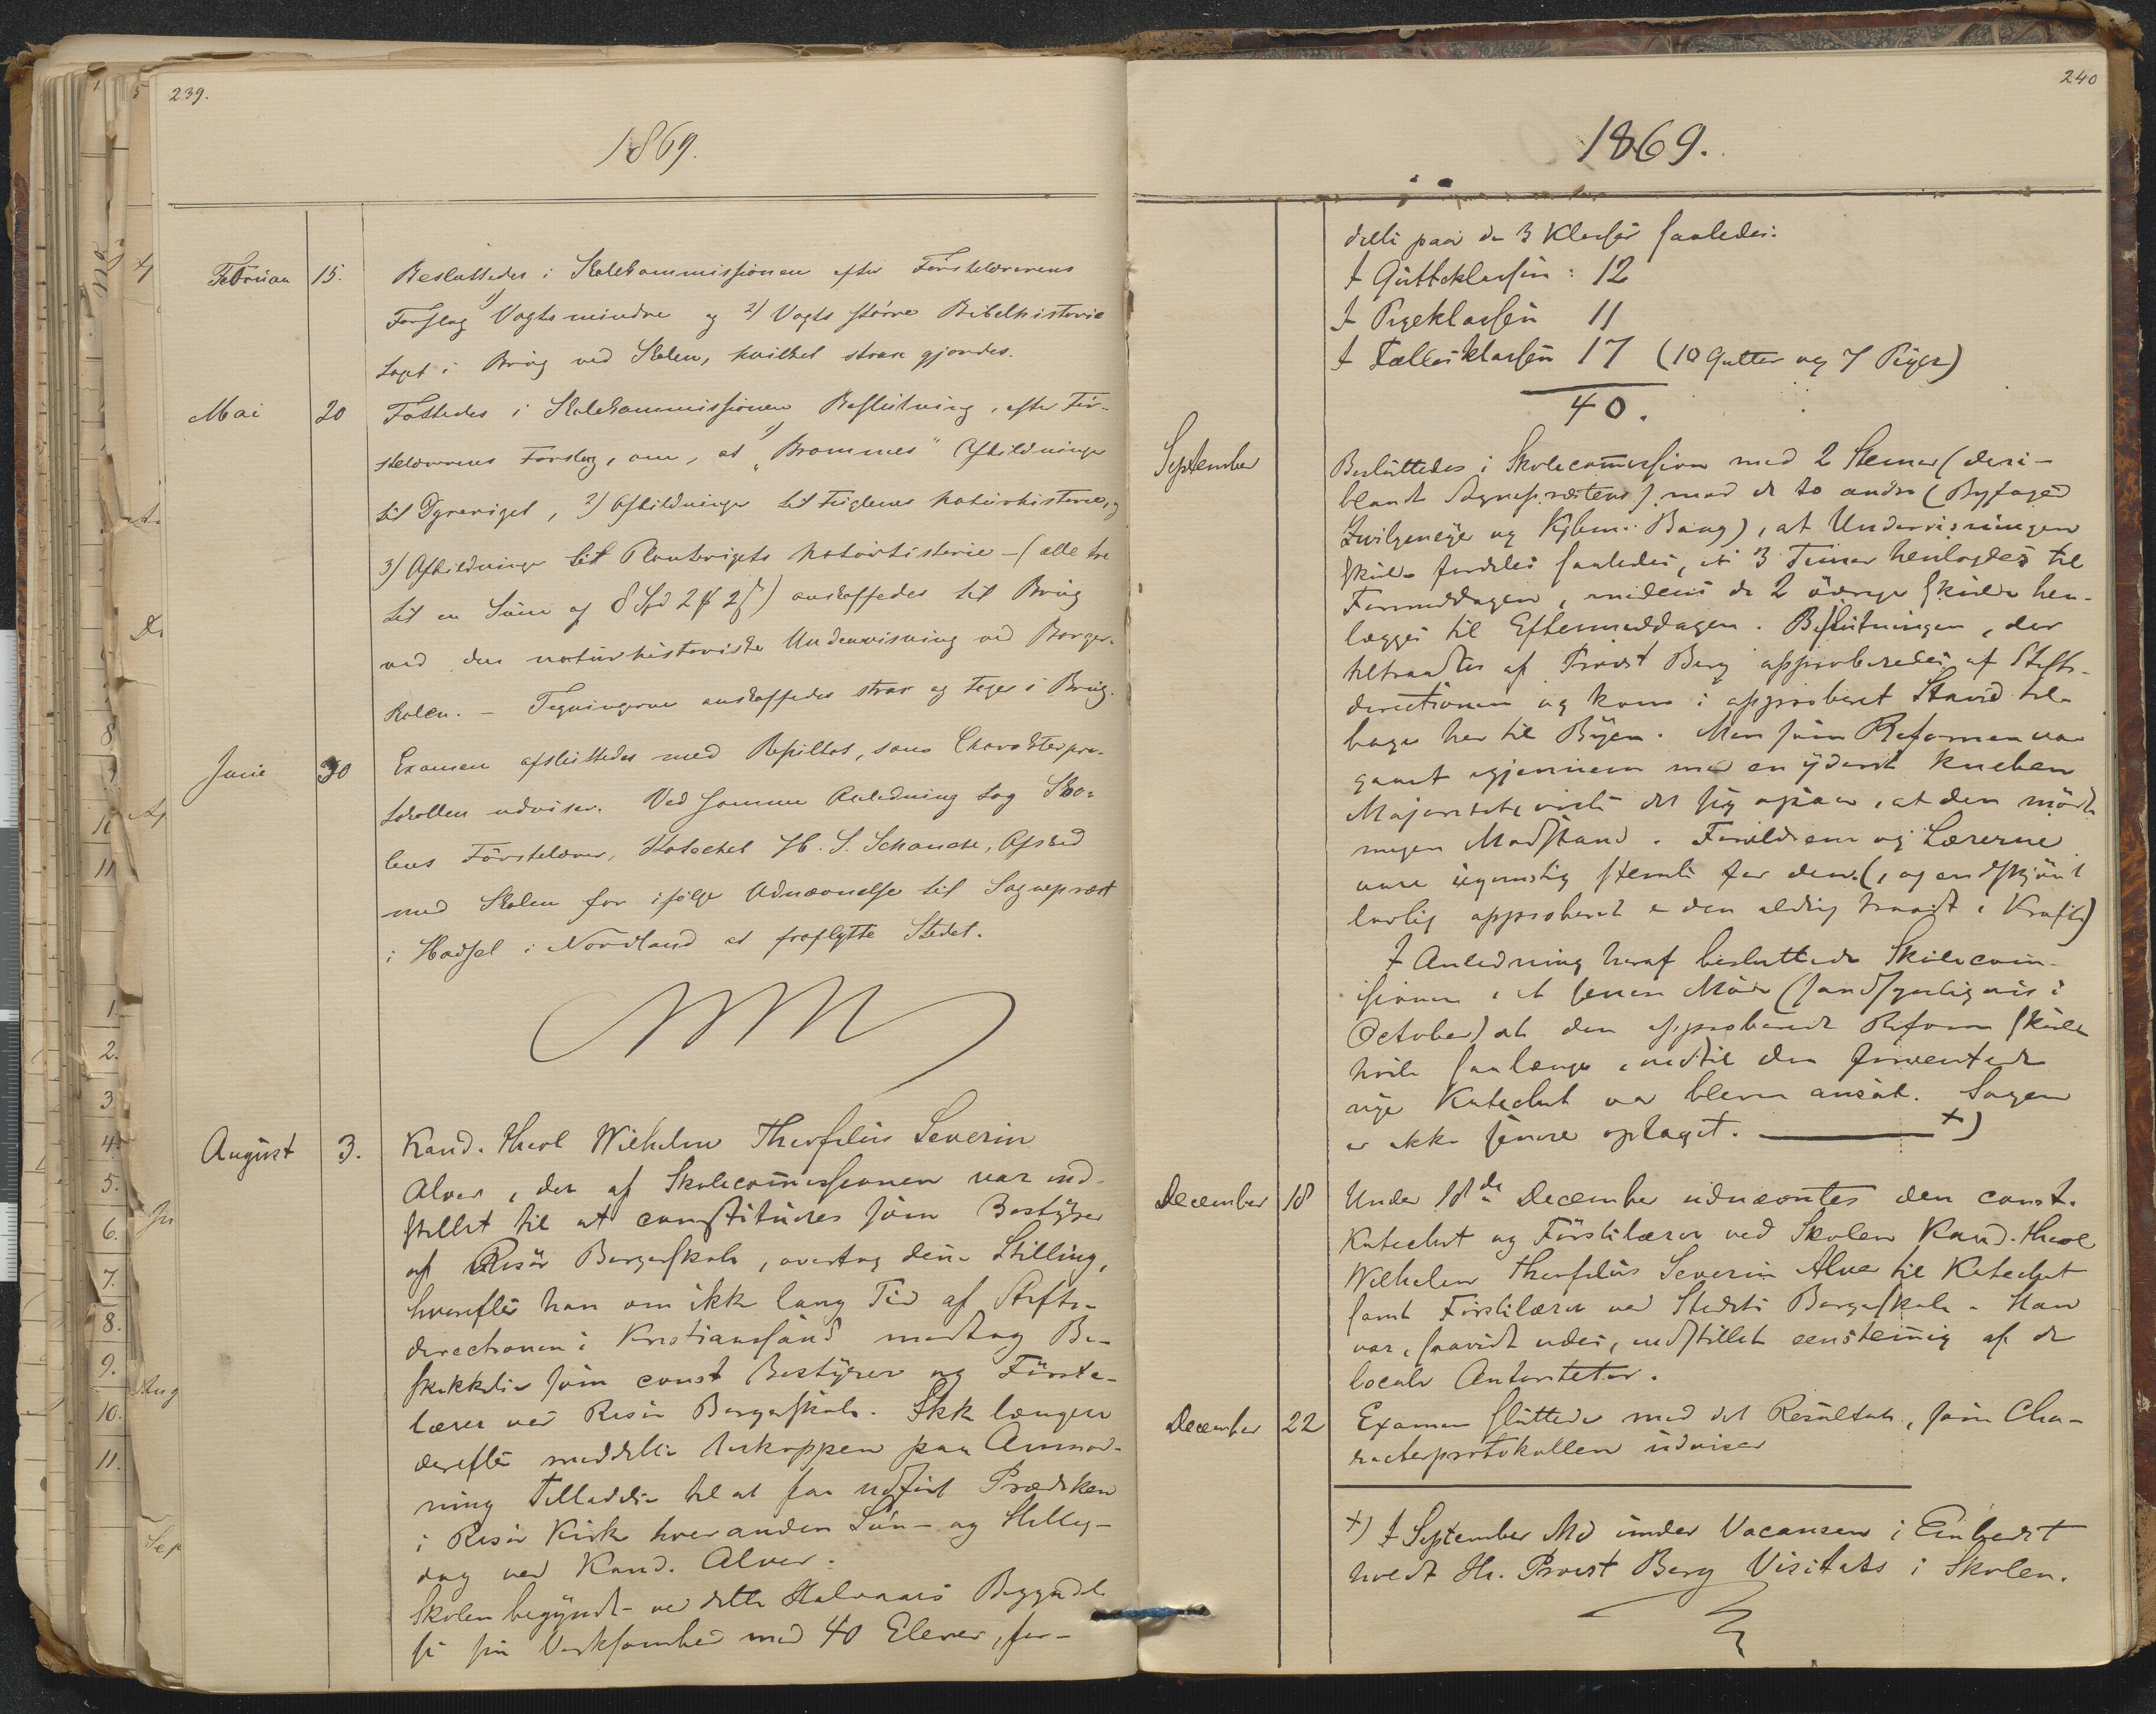 239.
1869.
Februar 15. Besluttedes i Skolekommissionen efter Førstelærerens
Forslag 1) Vogts mindre og 2) Vogts større Bibelhistorie
tagt i Brug ved Skolen, hvilket strax gjordes.
Mai 20 Fattedes i Skolekommissionen Beslutning, efter Før-
stelærerens Forslag, om, at 1) "Brommes" Afbildninger
til Dyreriget, 2) Afbildninger til Fuglenes Naturhistorie, og
3) Afbildninger til Planterigets Naturhistorie - (alle tre
til en Sum af 8 Spd 2 # 2 ß) anskaffedes til Brug
ved den naturhistoriske Undervisning ved Borger-
skolen. - Tegningerne anskaffedes strax og toges i Brug.
Juni 30 Examen afsluttedes med Resultat, som Charakterpro-
tokollen udviser. Ved samme Anledning tog Sko-
lens Førstelærer, Katechet H. S. Schanche, Afsked
med Skolen for ifølge Udnævnelse til Sogneprest
i Hadsel i Nordland at fraflytte Stedet.
August 3. Kand. theol Wilhelm Theofilus Severin
Alver, der af Skolecommissionen var ind-
stillet til at constitueres som Bestyrer
af Risør Borgerskole, overtog denne Stilling,
hvorefter han om ikke lang Tid af Stifts-
directionen i Kristianssand modtog Be-
skikkelse som const Bestyrer og Første-
lærer ved Risør Borgerskole. Ikke længere
derefter meddelte Biskoppen paa Anmod-
ning Tilladelse til at faa udført Prædiken
i Risør Kirke hver anden Søn- og Hellig-
dag ved Kand. Alver.
Skolen begyndte ved dette Halvaars Begyndel-
se sin Virksomhed med 40 Elever, for-
240
1869.
delte paa de 3 Klasser saaledes:
I Gutteklassen: 12
I Pigeklassen 11
I Fællesklassen 17 (10 Gutter og 7 Piger)
40.
September Besluttedes i Skolecommission med 2 Stemmer (deri-
blandt Sognepræstens) mod de to andre (Byfoged
og Kjbm. Bang), at Undervisningen
skulde fordeles saaledes, at 3 Timer henlagdes til
Formiddagen, medens de 2 øvrige skulde hen-
lægges til Eftermiddagen. Beslutningen, der
tiltraadtes af Provst Berg approberedes af Stifts-
directionen og kom i approberet Stand til-
bage her til Byen. Men som Reformen var
gaaet igjennem med en yderst kneben
Majoritet, viste det sig ogsaa, at den mødte
megen Modstand. Forældrene og Lærerne
vare ugunstig stemte for den (, og endskjønt
lovlig approberet er den aldrig traadt i Kraft)
I Anledning heraf besluttede Skolecom-
issionen i et senere Møde (sandsynligvis i
October) at den approberede Reform skulde
hvile saalænge, indtil den forventede
nye Katechet var bleven ansat. Sagen
er ikke senere optaget. ———— +)
December 18 Under 18de December udnævntes den const.
Katechet og Førstelærer ved Skolen Kand. theol
Wilhelm Theofilus Severin Alver til Katechet
samt Førstelærer ved Stedets Borgerskole. Han
var, saavidt vides, indstillet eenstemmig af de
locale Autoriteter.
December 22 Examen sluttede med det Resultat, som Cha-
racterprotokollen udviser
+) I September Md under Vacansen i Embedet
holdt Hr. Provst Berg Visitats i Skolen.